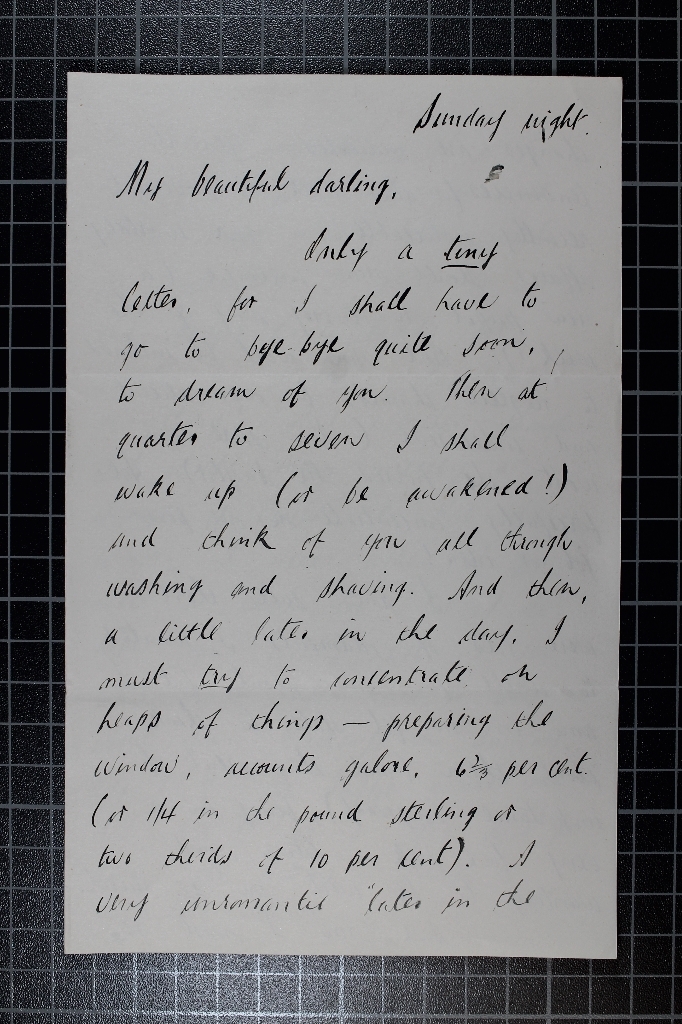 Sunday night.
My beautiful darling,
Only a tiny
letter, for I shall have to
go to bye-bye quite soon,
to dream of you. Then at
quarter to seven I shall
wake up (or be awakened!)
and think of you all through
washing and shaving. And then,
a little later in the day, I
must try to concentrate on
heaps of things — preparing the
window, accounts galore, 6⅔ per cent.
(or 1/4 in the pound sterling or
two thirds of 10 per cent). A
very unromantic "later in the